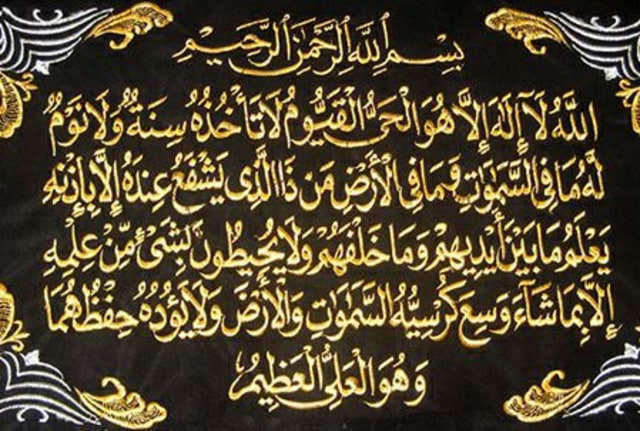 بِسْمِ اللَّهِ الرَّحْمَٰنِ الرَّحِيمِ
اللَّهُ لَا إِلَٰهَ إِلَّا هُوَ الْحَيُّ الْقَيُّومُ لَا تَأْخُذُهُ سِنَةٌ وَلَا نَوْمٌ
لَهُ مَا فِي السَّمَٰوَاتِ وَمَا فِي الْأَرْضِ مَن ذَا الَّذِي يَشْفَعُ عِندَهُ إِلَّا بِإِذْنِهِ
يَعْلَمُ مَا بَيْنَ أَيْدِيهِمْ وَمَا خَلْفَهُمْ وَلَا يُحِيطُونَ بِشَيْءٍ مِّنْ عِلْمِهِ
إِلَّا بِمَا شَاءَ وَسِعَ كُرْسِيُّهُ السَّمَٰوَاتِ وَالْأَرْضَ وَلَا يَؤُدُهُ حِفْظُهُمَا
وَهُوَ الْعَلِيُّ الْعَظِيمُ